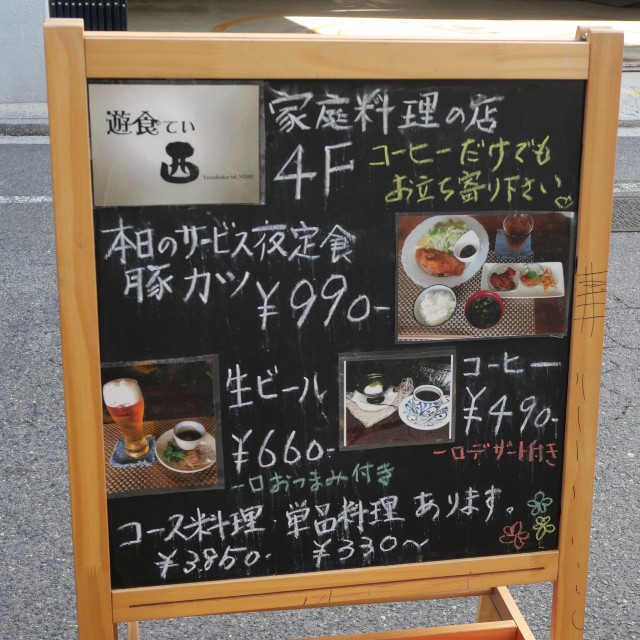 遊食てい
西
家庭料理の店
4F
コーヒーだけでも
お立ち寄り下さい
本日のサービス夜定食
豚カツ
¥990-
生ビール
¥660-
一口おつまみ付き
コーヒー
¥490-
一口デザート付き
コース料理・単品料理 あります。
¥3850- ¥330〜